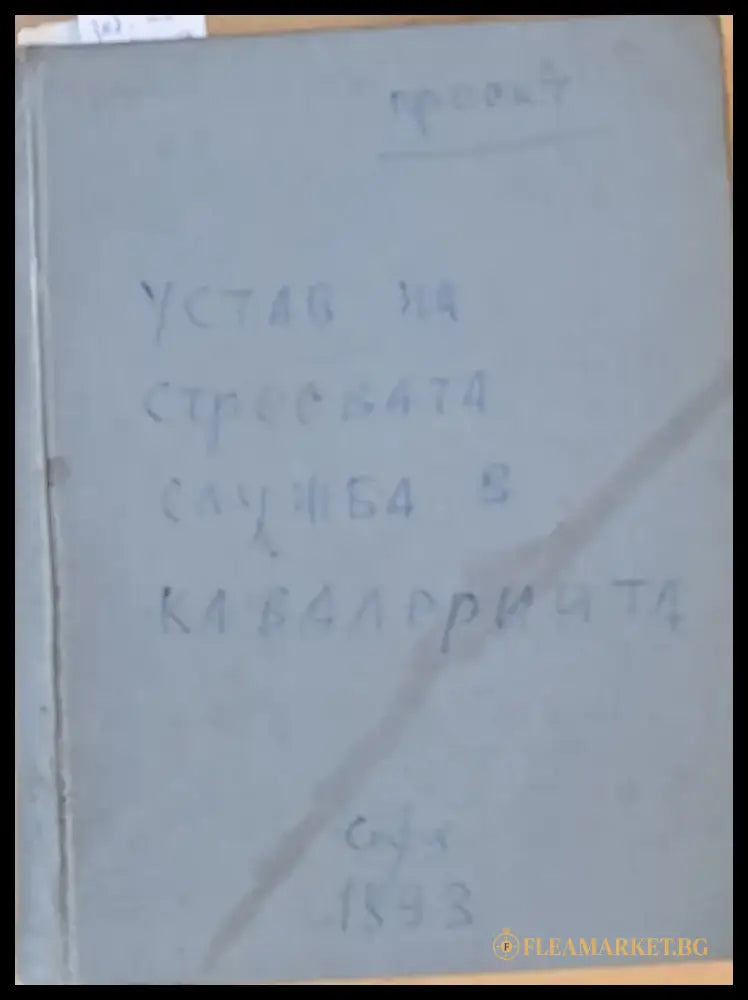 проект
УСТАВ НА
СТРОЕВАТА
СЛУЖБА В
КАВАЛЕРИЯТА
1893
FLEAMARKET.BG